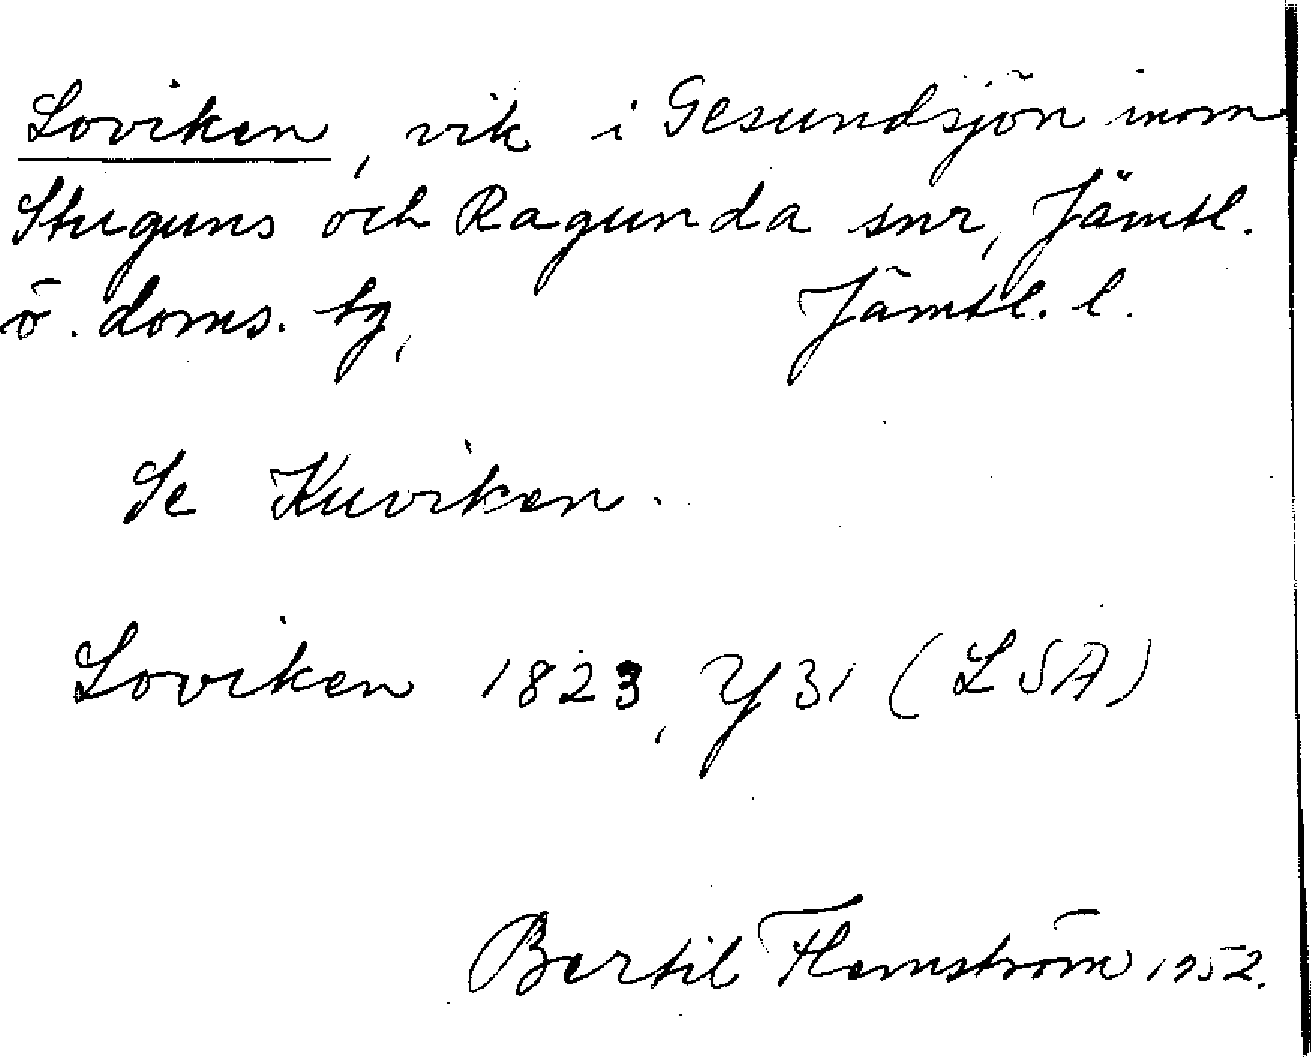 Loviken, vik i Gesundsjön inom
Stuguns och Ragunda snr, Jämtl.
ö. doms. tg, Jämtl. l.
Se Kuviken.
Loviken 1823, Y31 (LSA)
Bertil Flemström 1952.